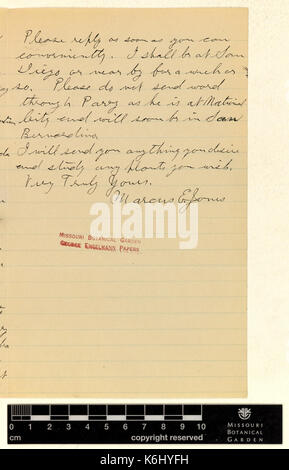 Please reply as soon as you can
conveniently. I shall be at San
Diego or near by for a week or
so. Please do not send word
through Parry as he is at National
City and will soon be in San
Bernardino
I will send you anything you desire
and study any plants you wish.
Very Truly Yours.
Marcus E. Jones
MISSOURI BOTANICAL GARDEN
GEORGE ENGELMANN PAPERS
alamy
0 1 2 3 4 5 6 7 8 9 10
cm
copyright reserved
MISSOURI
BOTANICAL
GARDEN
alamy
Image ID: K6HYFH
www.alamy.com